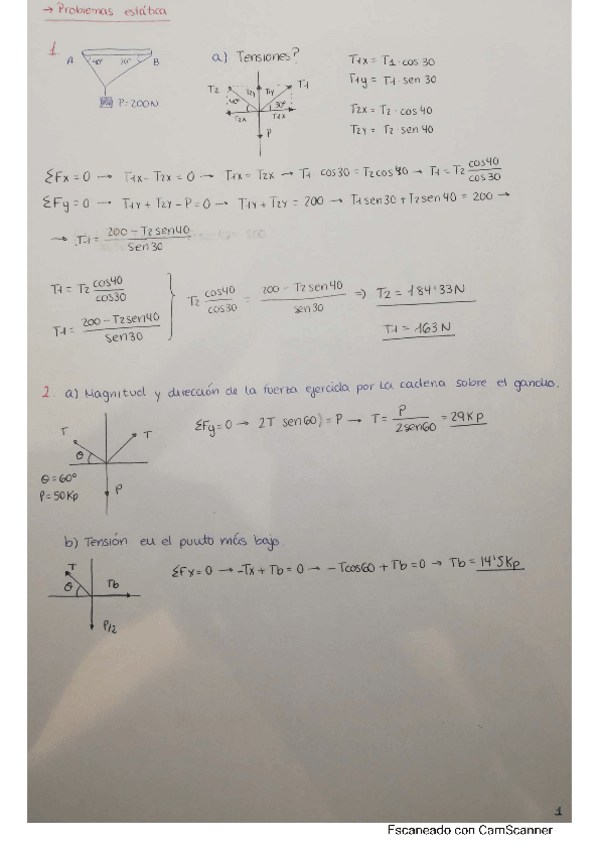 → Problemas estática
1.
A 40° 30° B
P=200N
a) Tensiones?
T2 T2y T1y T1
40° 30°
T2x T1x
P
T1x = T1 · cos 30
T1y = T1 · sen 30
T2x = T2 · cos 40
T2y = T2 · sen 40
ΣFx = 0 → T1x - T2x = 0 → T1x = T2x → T1 cos30 = T2 cos40 → T1 = T2 cos40/cos30
ΣFy = 0 → T1y + T2y - P = 0 → T1y + T2y = 200 → T1 sen30 + T2 sen40 = 200 →
→ T1 = 200 - T2 sen40/sen30
T1 = T2 cos40/cos30
T1 = 200 - T2 sen40/sen30
T2 cos40/cos30 = 200 - T2 sen40/sen30 ⇒ T2 = 184'33N
T1 = 163 N
2. a) Magnitud y dirección de la fuerza ejercida por la cadena sobre el gancho.
T T
θ
P
θ = 60°
P = 50Kp
ΣFy = 0 → 2T sen60) = P → T = P/2sen60 = 29Kp
b) Tensión en el punto más bajo.
T
θ Tb
P/2
ΣFx = 0 → -Tx + Tb = 0 → - Tcos60 + Tb = 0 → Tb = 14'5Kp
1
Escaneado con CamScanner